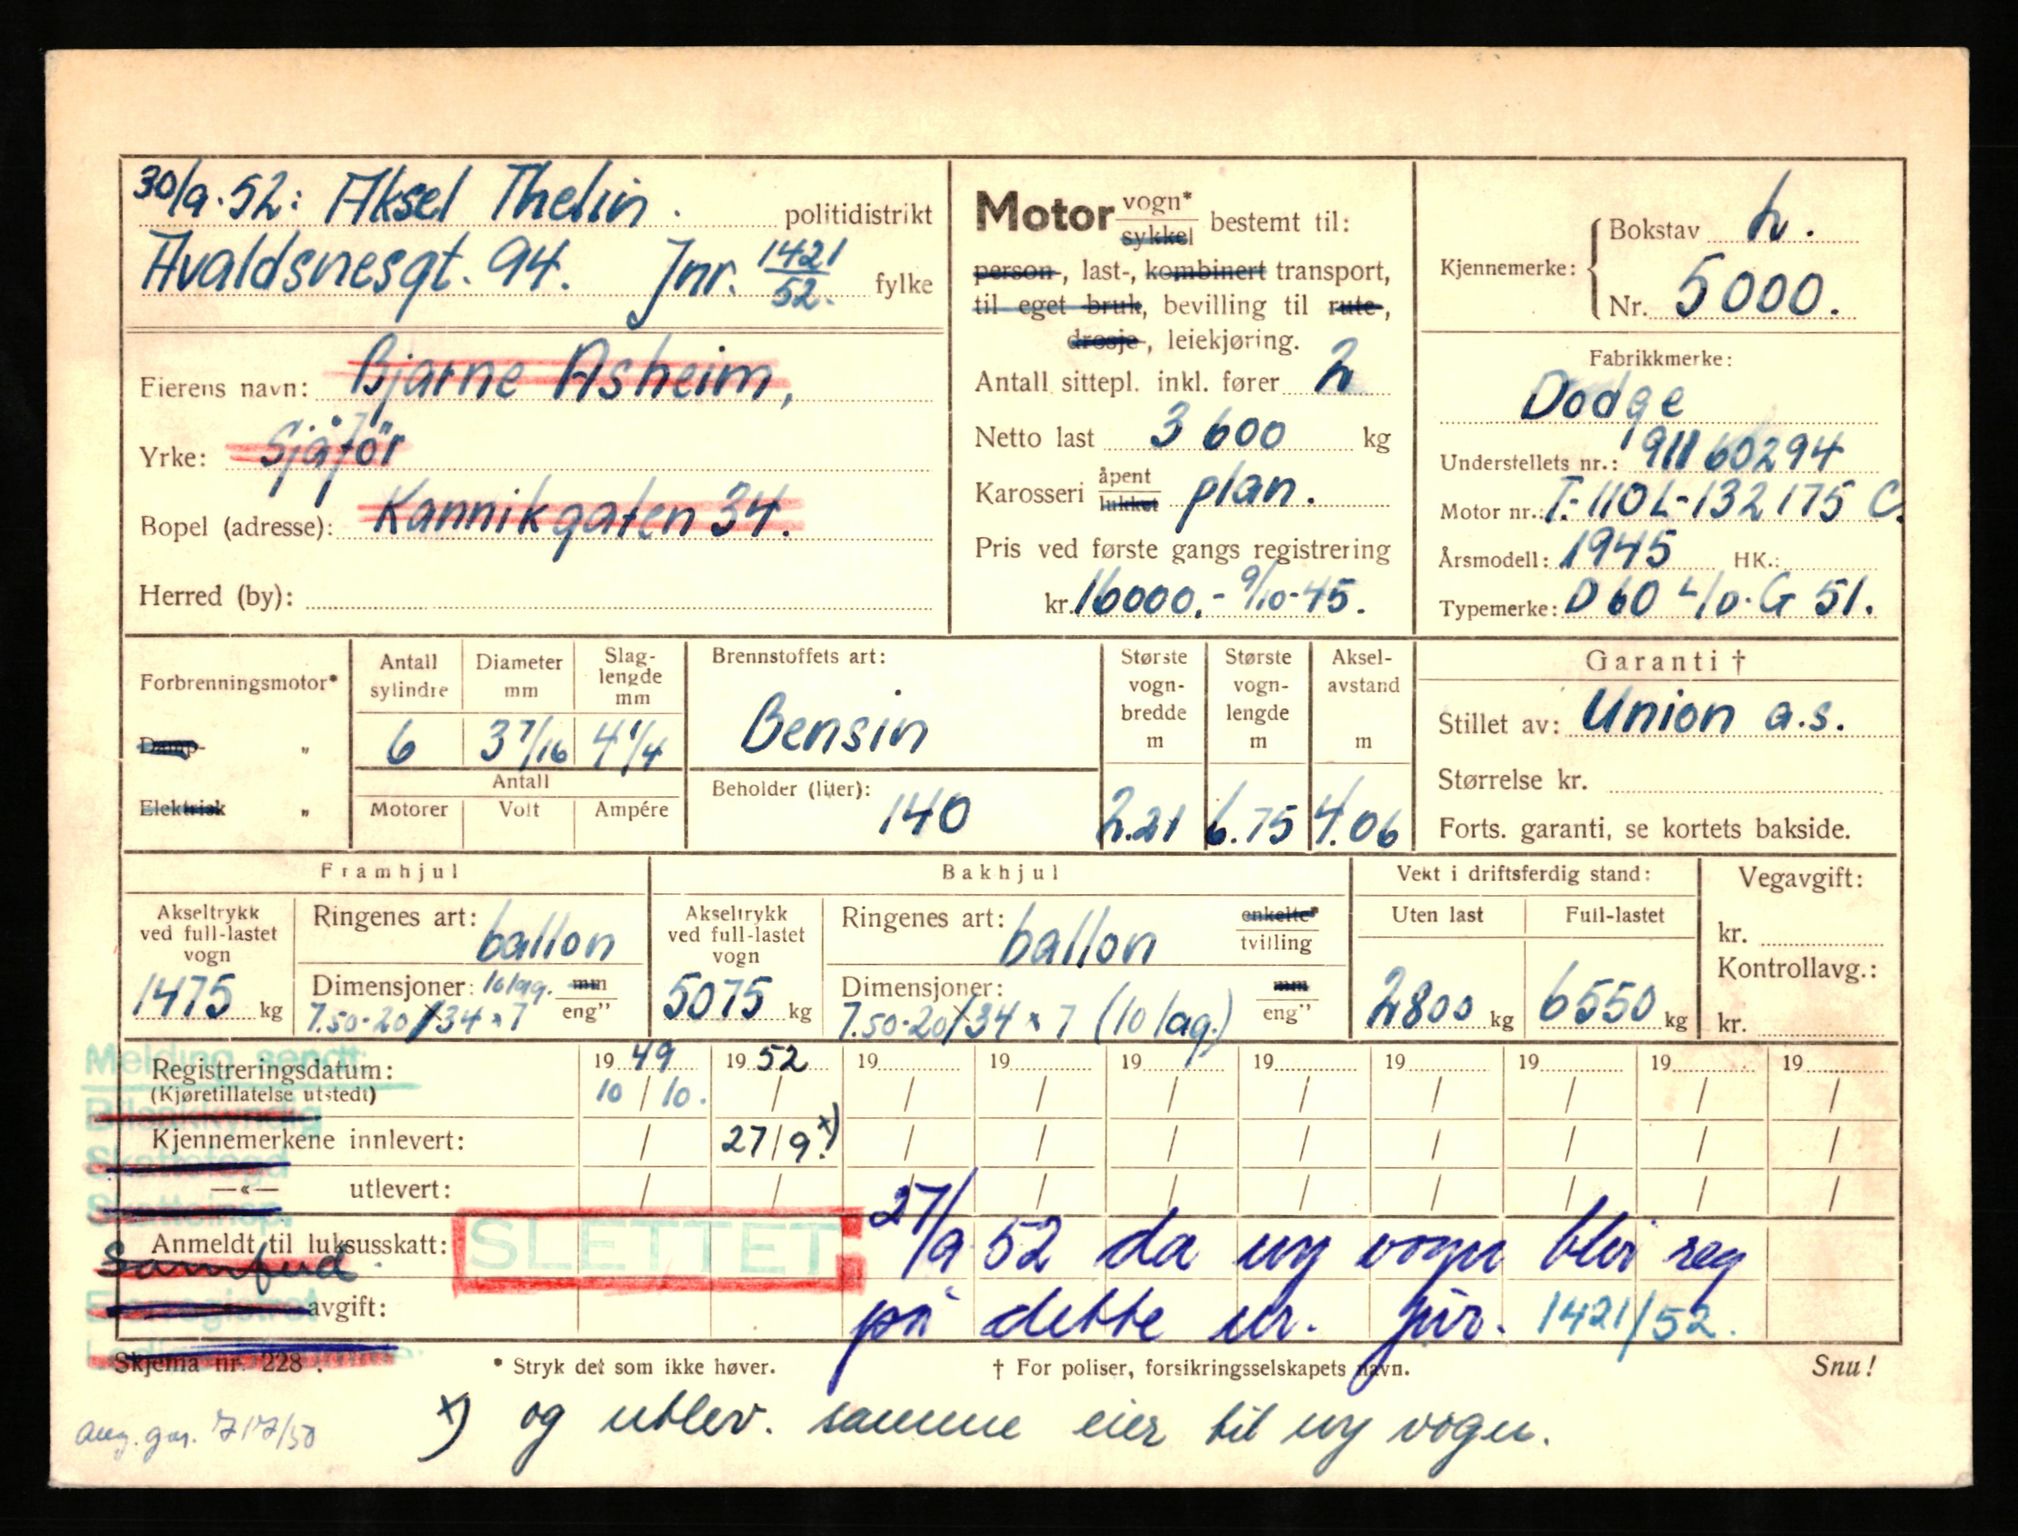 30/9.52: Aksel Thelin. politidistrikt
Avaldsnesgt. 94. Jnr. 1421/52. fylke
Eierens navn: Bjarne Asheim,
Yrke: Sjåför
Bopel (adresse): Kannikgaten 34.
Herred (by):
Motor vogn* sykkel bestemt til:
person-, last-, kombinert transport,
til eget bruk, bevilling til rute-,
drosje-, leiekjøring.
Antall sittepl. inkl. fører 2
Netto last 3600 kg
Karosseri åpent lukket plan.
Pris ved første gangs registrering
kr. 16000.- 9/10-45.
Kjennemerke: Bokstav L.
Nr. 5000.
Fabrikkmerke:
Dodge
Understellets nr.: 91160294
Motor nr.: T.-110L-132175 C.
Årsmodell: 1945 HK.:
Typemerke: D60 L/D. G 51.
Forbrenningsmotor*
Damp- "
Elektrisk "
Antall sylindre 6
Diameter mm 3 7/16
Slaglengde mm 4 1/4
Antall
Motorer Volt Ampére
Brennstoffets art:
Bensin
Beholder (liter):
140
Største vognbredde m 2.21
Største vognlengde m 6.75
Akselavstand m 4.06
Garanti †
Stillet av: Union a.s.
Størrelse kr.
Forts. garanti, se kortets bakside.
Framhjul
Akseltrykk ved full-lastet vogn 1475 kg
Ringenes art: ballon
Dimensjoner: 10 lag. mm eng"
7.50-20/34 x 7
Bakhjul
Akseltrykk ved full-lastet vogn 5075 kg
Ringenes art: ballon enkelte* tvilling
Dimensjoner: mm eng"
7.50-20/34 x 7 (10 lag.)
Vekt i driftsferdig stand:
Uten last 2800 kg
Full-lastet 6550 kg
Vegavgift:
kr.
Kontrollavg.:
kr.
Melding sendt:
Bilsakkyndig
Skattefogd
Skatteinsp.
Samferd
Registreringsdatum: 19 49 19 52 19 19 19 19 19 19 19 19
(Kjøretillatelse utstedt) 10/10. / / / / / / / / /
Kjennemerkene innlevert: / 27/9. x) / / / / / / / /
—«— utlevert: / / / / / / / / / /
Anmeldt til luksusskatt:
avgift:
SLETTET
27/9 52 da ny vogn blir reg
på dette nr. jnr. 1421/52.
Skjema nr. 228.
* Stryk det som ikke høver.
† For poliser, forsikringsselskapets navn.
Snu!
x) og utlev. samme eier til ny vogn.